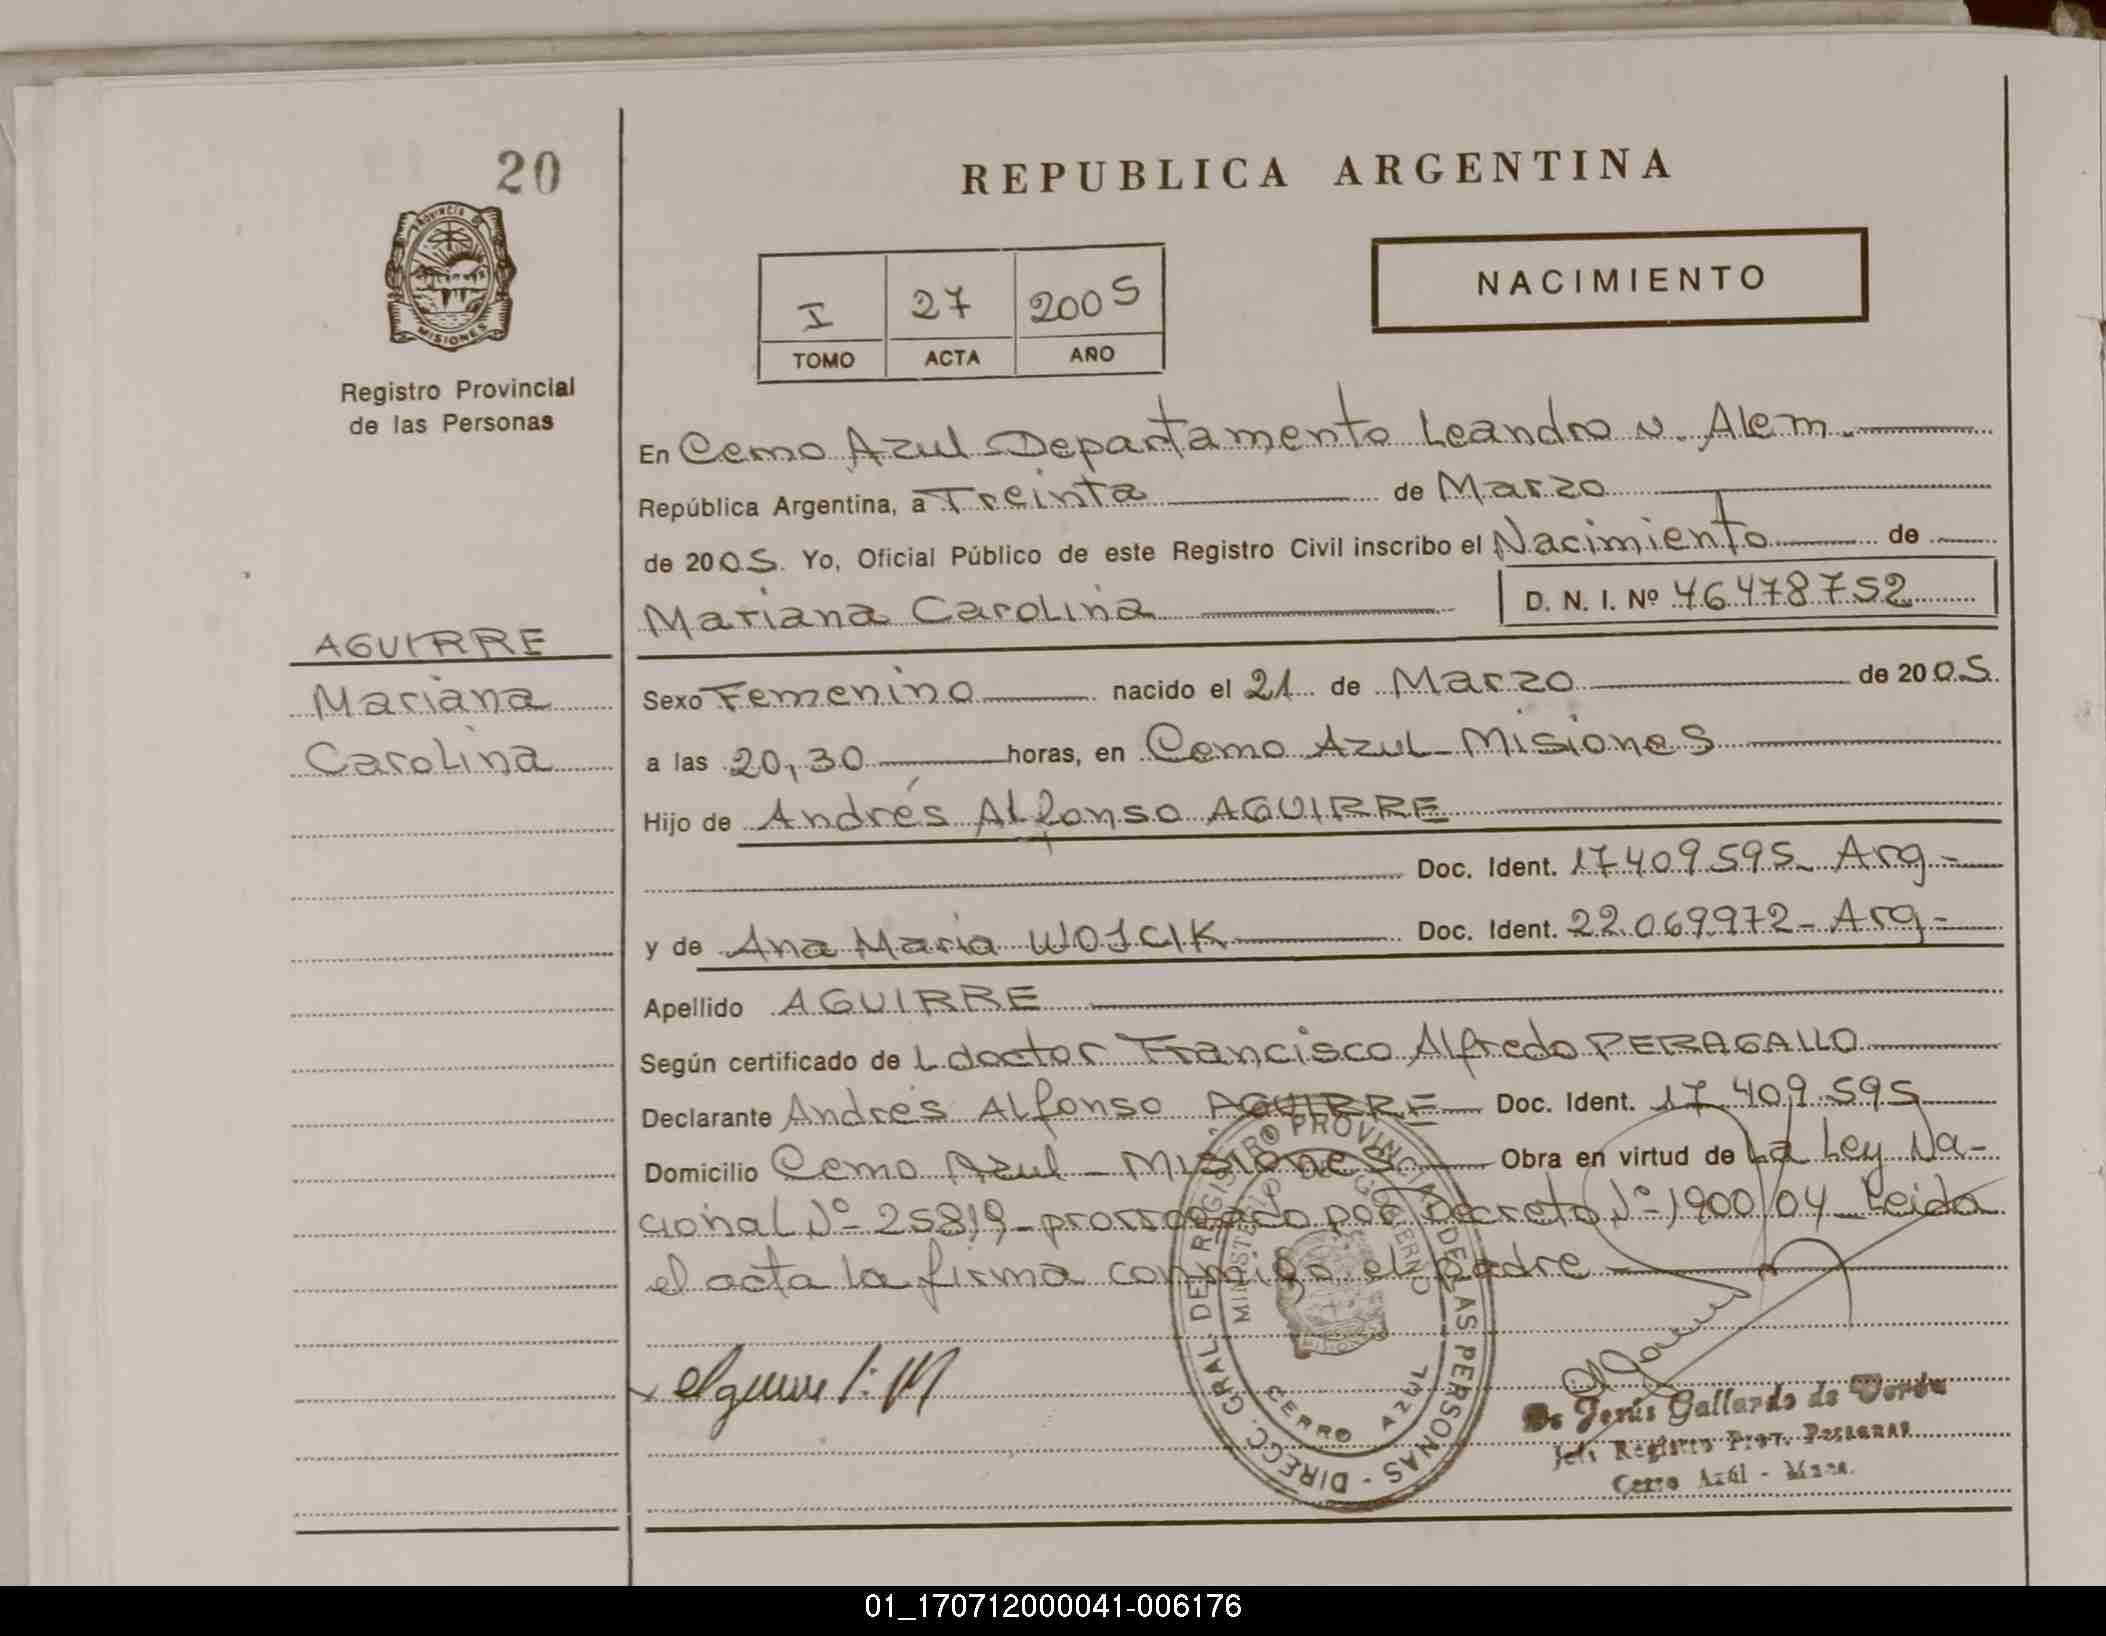 20
PROVINCIA DE
MISIONES
Registro Provincial
de las Personas
AGUIRRE
Mariana
Carolina
REPUBLICA ARGENTINA
I 27 2005
TOMO ACTA AÑO
NACIMIENTO
En Cerro Azul Departamento Leandro N. Alem.
República Argentina, a Treinta de Marzo
de 2005. Yo, Oficial Público de este Registro Civil inscribo el Nacimiento de
Mariana Carolina D. N. I. Nº 46478752
Sexo Femenino nacido el 21 de Marzo de 2005.
a las 20,30 horas, en Cerro Azul-Misiones
Hijo de Andrés Alfonso AGUIRRE
Doc. Ident. 17.409.595- Arg-
y de Ana Maria WOJCIK Doc. Ident. 22.069.972- Arg-
Apellido AGUIRRE
Según certificado del doctor Francisco Alfredo PERAGALLO
Declarante Andrés Alfonso AGUIRRE Doc. Ident. 17.409.595
Domicilio Cerro Azul - Misiones Obra en virtud de La Ley Na-
cional Nº 25819- prorrogado por Decreto Nº 1900/04 Leida
el acta la firma conmigo el padre
DIRECC. GRAL. DE REGISTRO PROVINCIAL DE LAS PERSONAS -
MINISTERIO DE GOBIERNO
CERRO AZUL
De Jesús Gallardo de
Jefe Registro Prov. Personas
Cerro Azúl - Mnes.
01_170712000041-006176